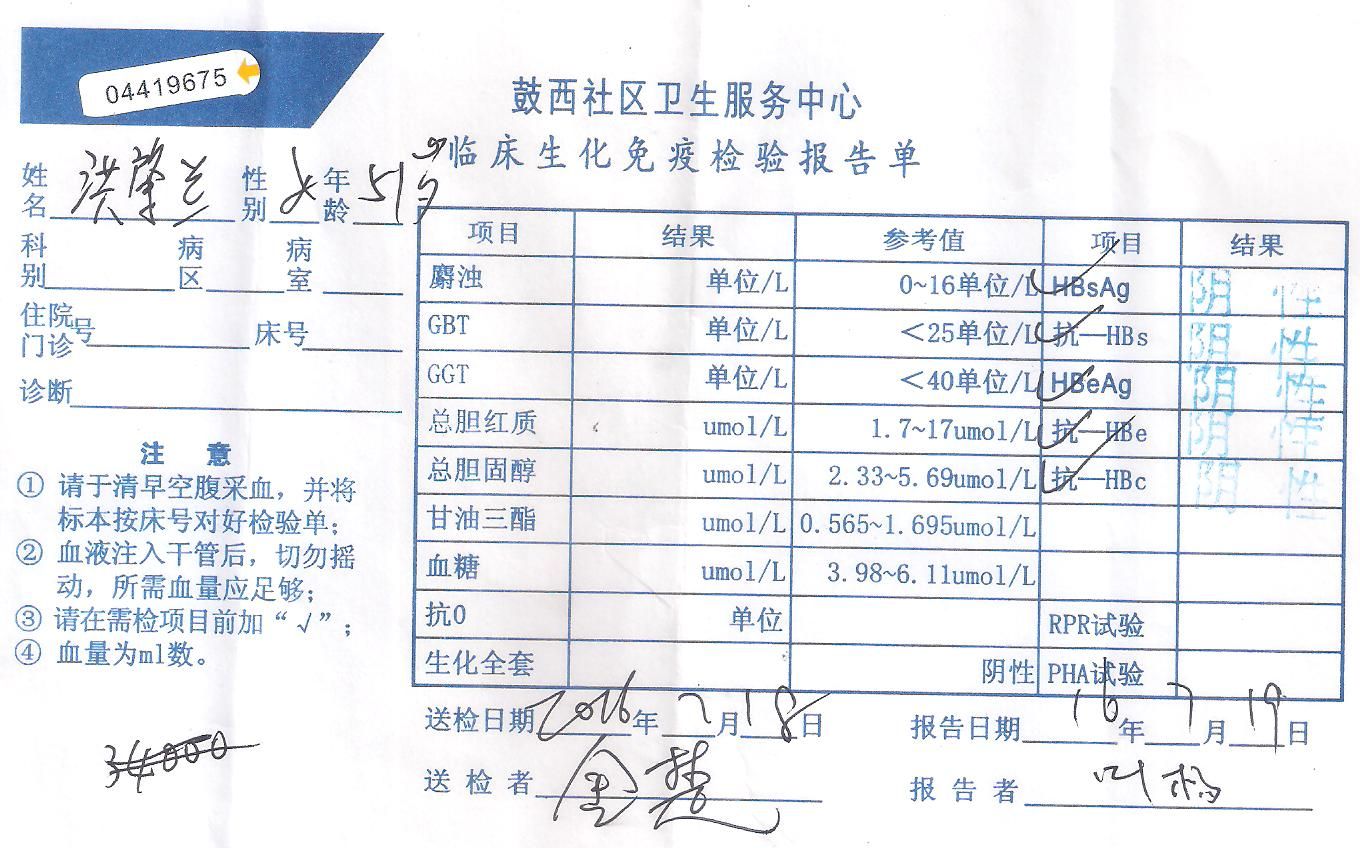 04419675
鼓西社区卫生服务中心
临床生化免疫检验报告单
姓名 洪肇兰 性别 女 年龄 51岁
科别 病区 病室
住院门诊号 床号
诊断
注 意
① 请于清早空腹采血，并将
标本按床号对好检验单；
② 血液注入干管后，切勿摇
动，所需血量应足够；
③ 请在需检项目前加“√”；
④ 血量为ml数。
项目 结果 参考值 项目 结果
麝浊 单位/L 0~16单位/L √HBsAg 阴 性
GBT 单位/L <25单位/L √抗—HBs 阴 性
GGT 单位/L <40单位/L √HBeAg 阴 性
总胆红质 umol/L 1.7~17umol/L √抗—HBe 阴 性
总胆固醇 umol/L 2.33~5.69umol/L √抗—HBc 阴 性
甘油三酯 umol/L 0.565~1.695umol/L
血糖 umol/L 3.98~6.11umol/L
抗0 单位 RPR试验
生化全套 阴性 PHA试验
送检日期 2016年7月18日 报告日期 16年7月19日
送检者 报告者 叶杨